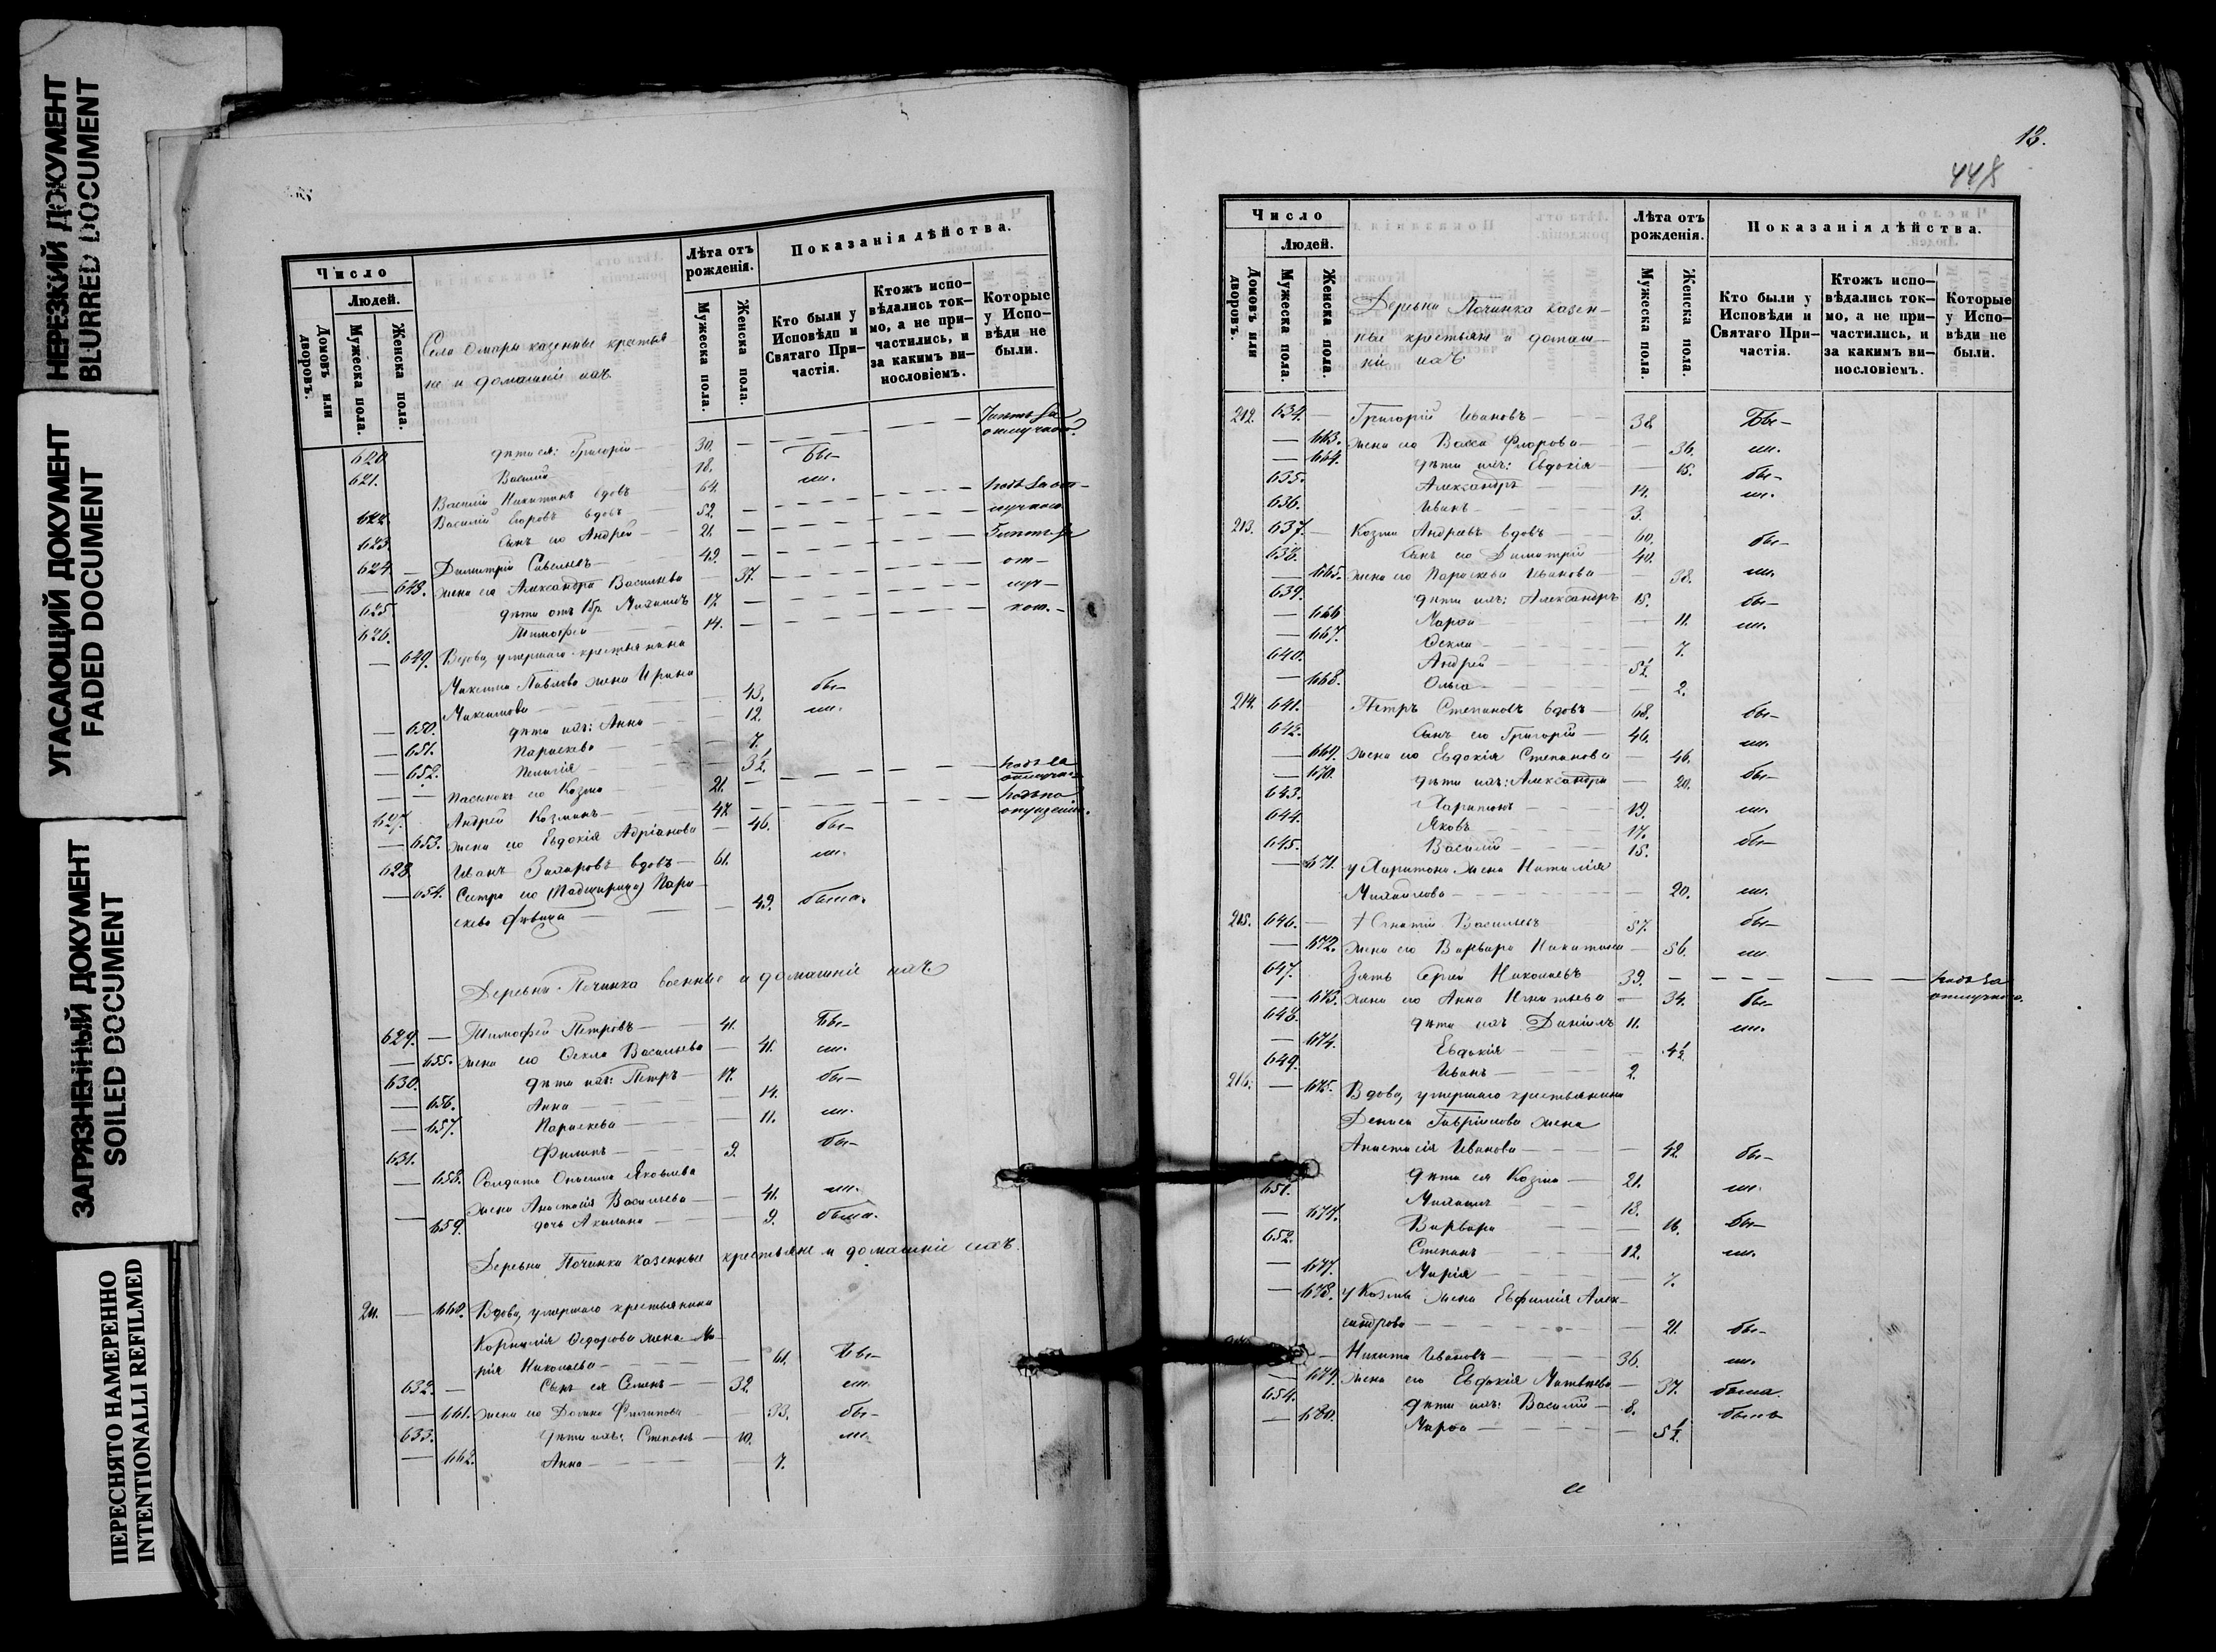 НЕРЕЗКИЙ ДОКУМЕНТ
BLURRED DOCUMENT
УГАСАЮЩИЙ ДОКУМЕНТ
FADED DOCUMENT
ЗАГРЯЗНЕННЫЙ ДОКУМЕНТ
SOILED DOCUMENT
ПЕРЕСНЯТО НАМЕРЕННО
INTENTIONALLI REFILMED
Число
Людей.
Домовъ или дворовъ.
Мужеска пола.
Женска пола.
Села Омары казенные крестья
не и домашніе ихъ
Лѣта отъ рожденія.
Мужеска пола.
Женска пола.
Показанія дѣйства.
Кто были у Исповѣди и Святаго Причастія.
Ктожъ исповѣдались токмо, а не причастились, и за какимъ винословіемъ.
Которые у Исповѣди не были.
620. дѣти ея: Григорій 30.
621. Василій 18. Бы-
622. Василій Никитинъ вдовъ 64. ли.
623. Василій Егоровъ вдовъ 52.
624. Сынъ его Андрей 21.
Димитрій Савельевъ 49.
648. жена его Александра Васильева 37.
625. дѣти отъ 1бр. Михаилъ 17.
626. Тимофей 14.
649. Вдова, умершаго крестьянина
Максима Павлова жена Ирина
Максимова 43. бы-
650. дѣти ихъ: Анна 12. ли.
651. Параскева 7.
652. Пелагія 3½.
Пасынокъ его Козма 21.
627. Андрей Козминъ 47.
653. жена его Евдокія Адріанова 46. бы-
628. Иванъ Захаровъ вдовъ 61. ли.
654. Сестра его (Падщерица) Пара
скева дѣвица 49. была.
Деревни Починка военные и домашніе ихъ
629. Тимофей Петровъ 41. Бы-
655. жена его Ѳекла Васильева 41. ли.
630. дѣти ихъ: Петръ 17. бы-
656. Анна 14.
657. Параскева 11. ли.
631. Филипъ 9. бы-
658. Солдата Яковлева
жена Анастасія Васильева 41. ли.
659. дочь Акилина 9. была.
Деревни Починка казенные крестьяне и домашніе ихъ.
211. 660. Вдова, умершаго крестьянина
Корнилія Ѳедорова жена Ма-
рія Николаева 61. Бы-
632. Сынъ ея Семенъ 32. ли.
661. жена его Домна Филипова 33. бы-
633. дѣти ихъ: Степанъ 10. ли.
662. Анна 7.
13.
448
Число
Людей.
Домовъ или дворовъ.
Мужеска пола.
Женска пола.
Деревни Починка казен-
ные крестьяне и домаш-
ніе ихъ
Лѣта отъ рожденія.
Мужеска пола.
Женска пола.
Показанія дѣйства.
Кто были у Исповѣди и Святаго Причастія.
Ктожъ исповѣдались токмо, а не причастились, и за какимъ винословіемъ.
Которые у Исповѣди не были.
212. 634. Григорій Ивановъ 38. Бы-
663. жена его Васса Флорова 36. ли.
664. дѣти ихъ: Евдокія 15. бы-
635. Александръ 14. ли.
636. Иванъ 3.
213. 637. Козма Андреевъ вдовъ 60. бы-
638. Сынъ его Димитрій 40.
665. жена его Параскева Иванова 38. ли.
639. дѣти ихъ: Александръ 15. бы-
666. Марѳа 11. ли.
667. Ѳекла 7.
640. Андрей 5½.
668. Ольга 2.
214. 641. Петръ Степановъ вдовъ 68. бы-
642. Сынъ его Григорій 46. ли.
669. жена его Евдокія Степанова 46.
670. дѣти ихъ: Александра 20. бы-
643. Харитонъ 19. ли.
644. Яковъ 17.
645. Василій 15. бы-
671. у Харитона жена Наталія
Михайлова 20. ли.
215. 646. Игнатій Васильевъ 57. бы-
672. жена его Варвара Никитина 56. ли.
647. Зять Сергѣй Николаевъ 39.
673. жена его Анна Игнатьева 34. бы-
648. дѣти ихъ Даніилъ 11. ли.
674. Евдокія 4½
649. Иванъ 2.
216. 675. Вдова, умершаго крестьянина
Дениса Гавріилова жена
Анастасія Иванова 42. бы-
дѣти ея Козма 21. ли.
651. Михаилъ 18.
Варвара 16. бы-
652. Степанъ 12. ли.
677. Марія 7.
678. у Козмы жена Евфимія Алек-
сандрова 21. бы-
Никита Ивановъ 36. ли.
679. жена его Евдокія Матвѣева 37. была.
654. дѣти ихъ: Василій 8. былъ
680. Марѳа 5½.